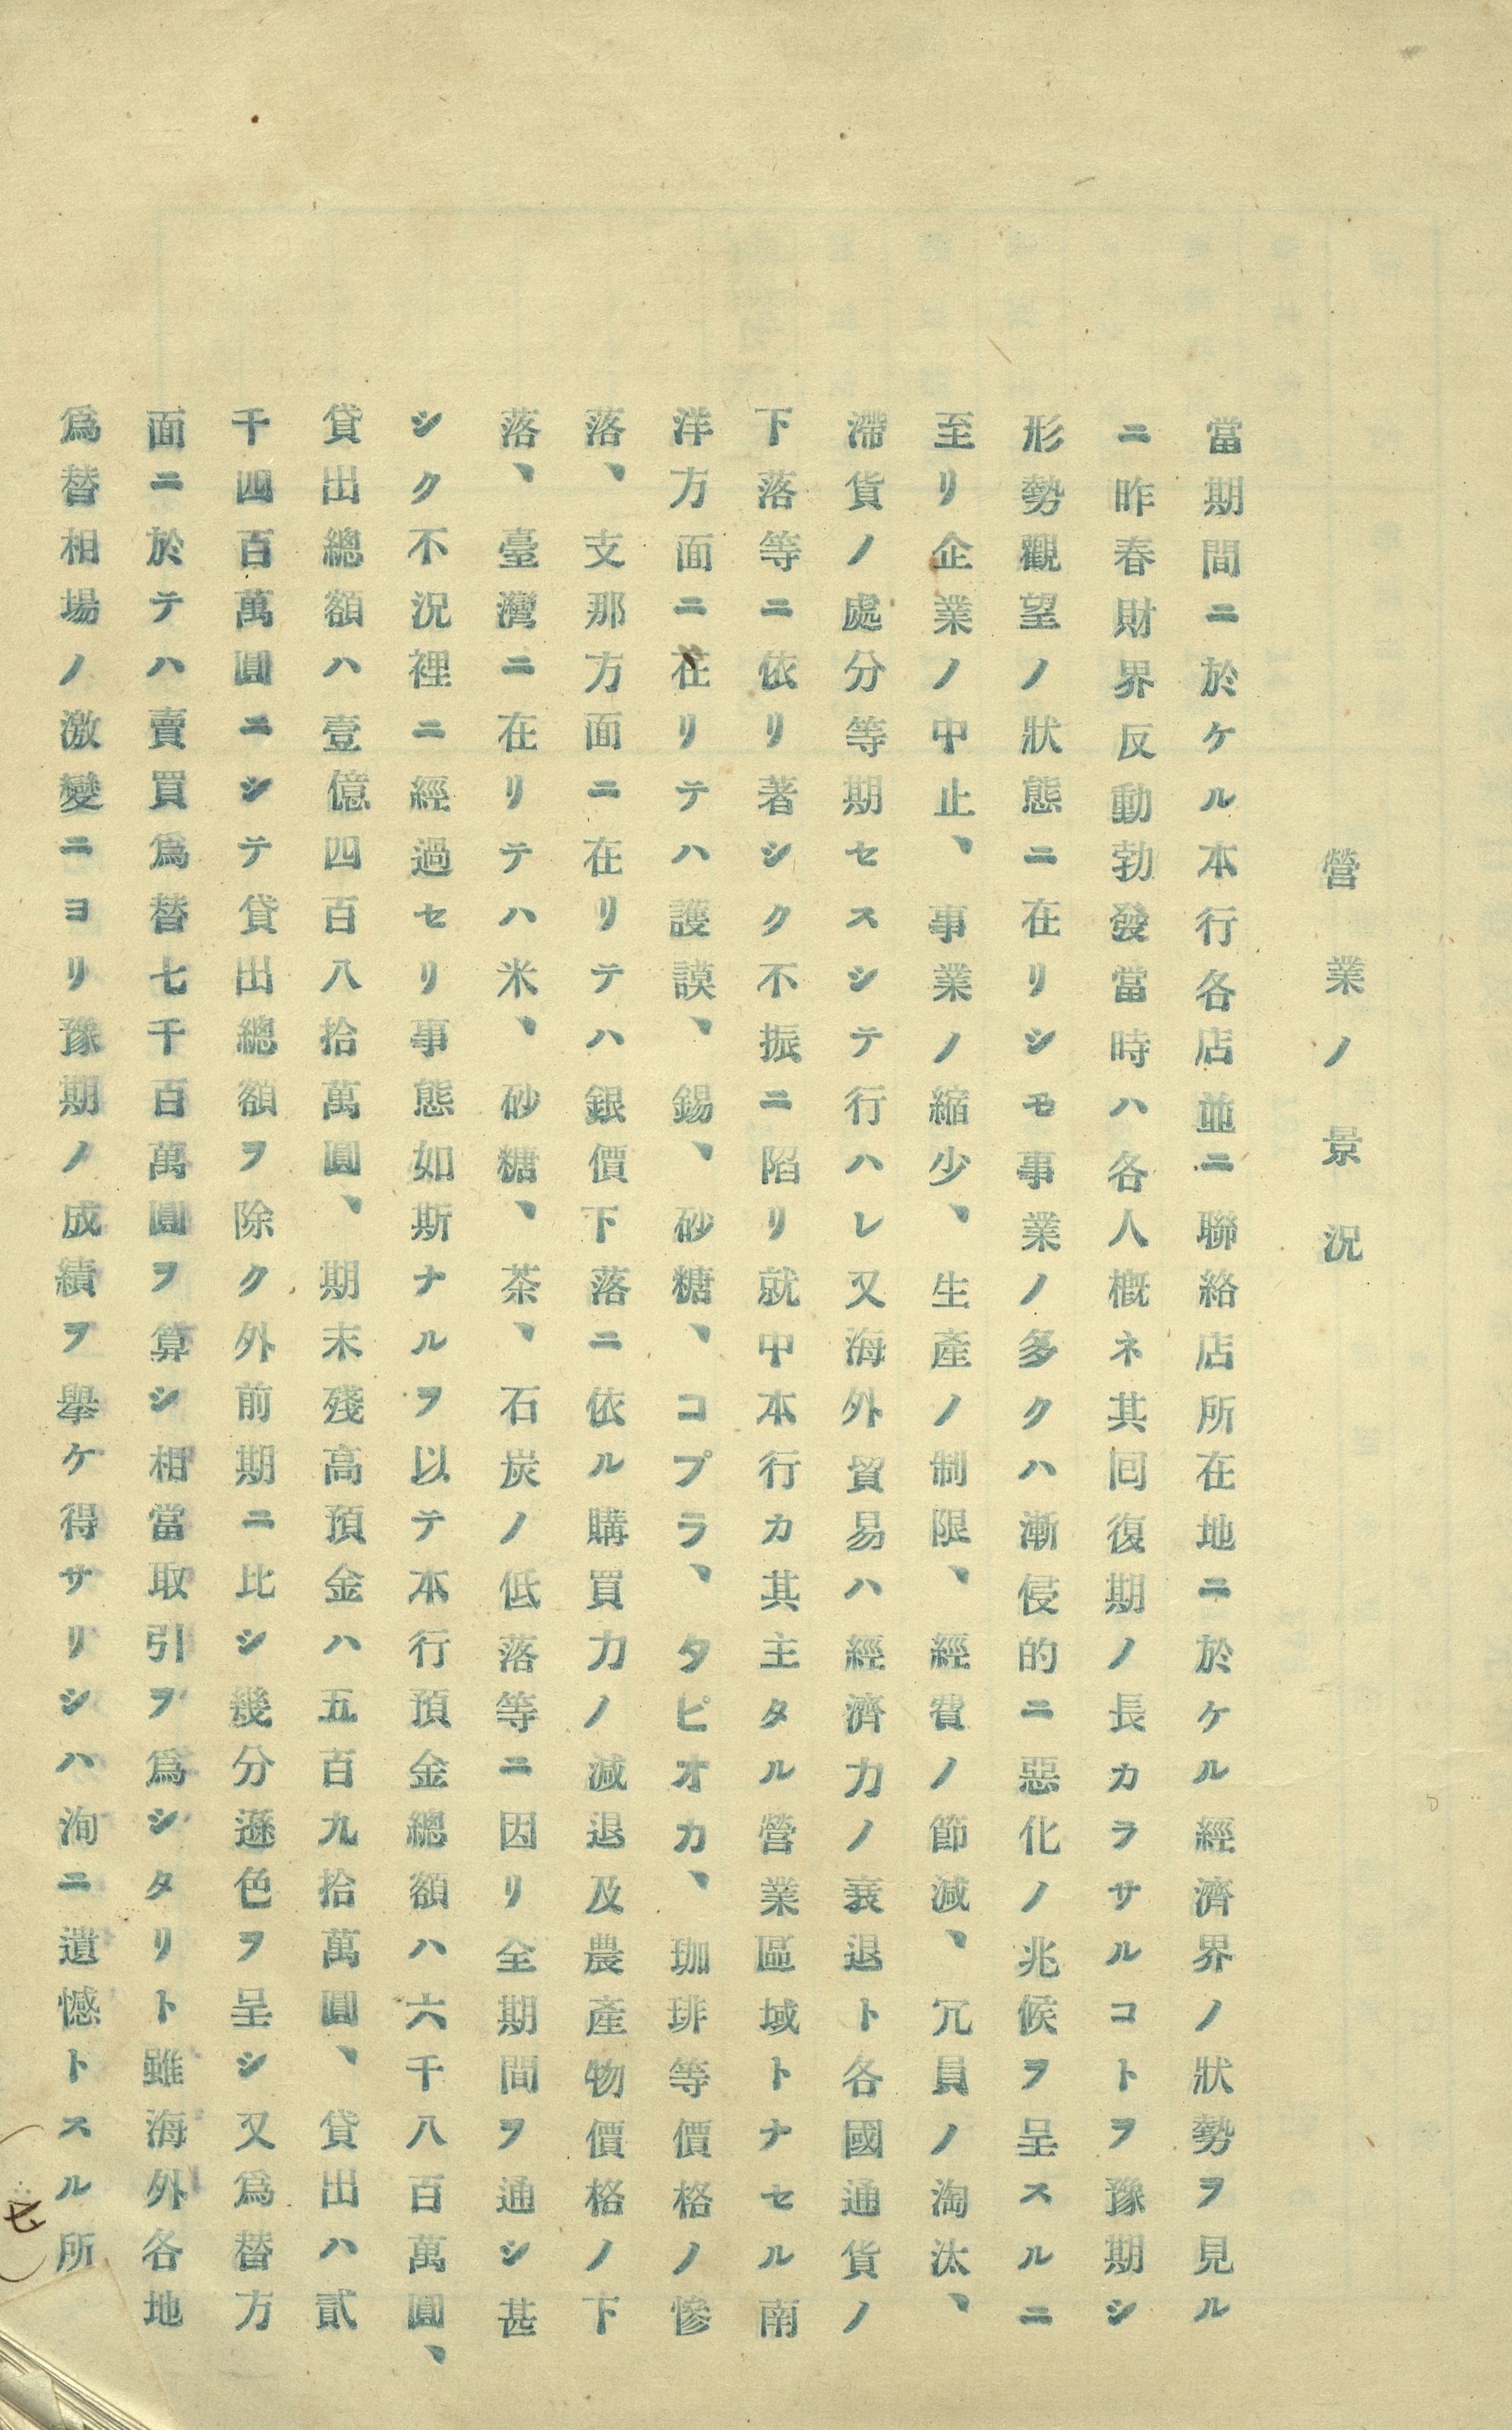 營業ノ景況
當期間ニ於ケル本行各店並ニ聯絡店所在地ニ於ケル經濟界ノ狀勢ヲ見ル
ニ昨春財界反動勃發當時ハ各人槪ネ其回復期ノ長カラサルコトヲ豫期シ
形勢觀望ノ狀態ニ在リシモ事業ノ多クハ漸侵的ニ惡化ノ兆候ヲ呈スルニ
至リ企業ノ中止、事業ノ縮少、生產ノ制限、經費ノ節減、冗員ノ淘汰、
滯貨ノ處分等期セスシテ行ハレ又海外貿易ハ經濟力ノ衰退ト各國通貨ノ
下落等ニ依リ著シク不振ニ陷リ就中本行カ其主タル營業區域トナセル南
洋方面ニ在リテハ護謨、錫、砂糖、コプラ、タピオカ、珈琲等價格ノ慘
落、支那方面ニ在リテハ銀價下落ニ依ル購買力ノ減退及農產物價格ノ下
落、臺灣ニ在リテハ米、砂糖、茶、石炭ノ低落等ニ因リ全期間ヲ通シ甚
シク不況裡ニ經過セリ事態如斯ナルヲ以テ本行預金總額ハ六千八百萬圓、
貸出總額ハ壹億四百八拾萬圓、期末殘高預金ハ五百九拾萬圓、貸出ハ貳
千四百萬圓ニシテ貸出總額ヲ除ク外前期ニ比シ幾分遜色ヲ呈シ又爲替方
面ニ於テハ賣買爲替七千百萬圓ヲ算シ相當取引ヲ爲シタリト雖海外各地
爲替相場ノ激變ニヨリ豫期ノ成績ヲ擧ケ得サリシハ洵ニ遺憾トスル所
(七)